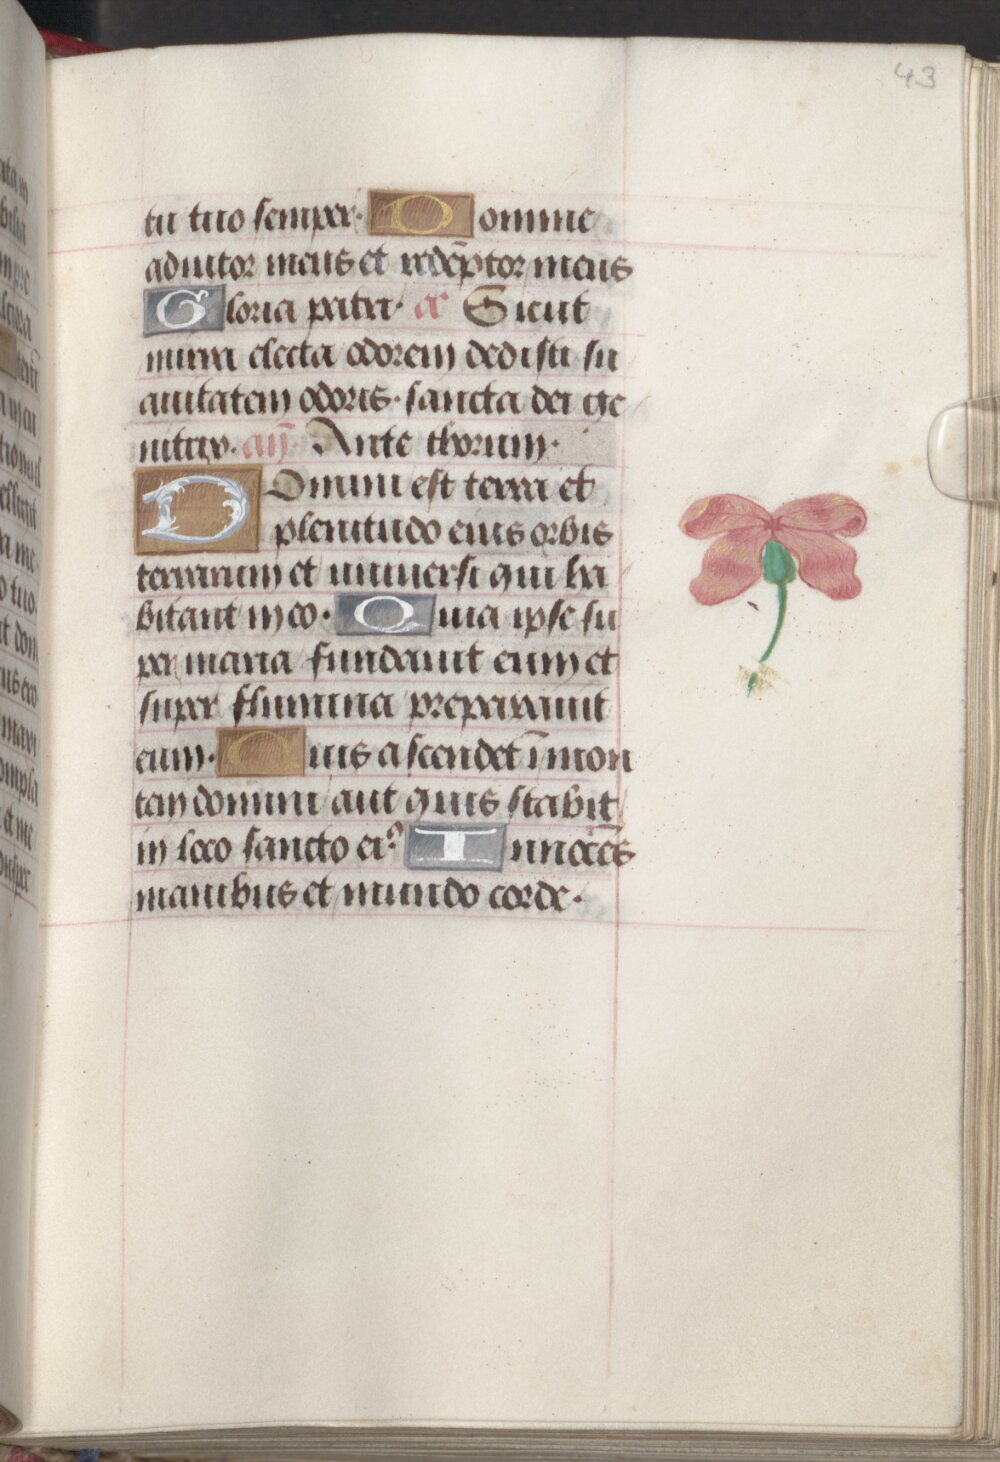 43
tu tuo semper· Domine
adiutor meus et redẽptor meus
Gloria patri· a͂ Sicut
mirra electa odorem dedisti su
auitatem odoris· sancta dei ge
nitrix· añ· Ante thorum·
Domini est terra et
plenitudo eius orbis
terrarum et uniuersi qui ha
bitant in eo· Quia ipse su
per maria fundauit eum et
super flumina preparauit
eum· Quis ascendet ĩ mon
tem domini aut quis stabit
in loco sancto ei⁹ Innocẽs
manibus et mundo corde·